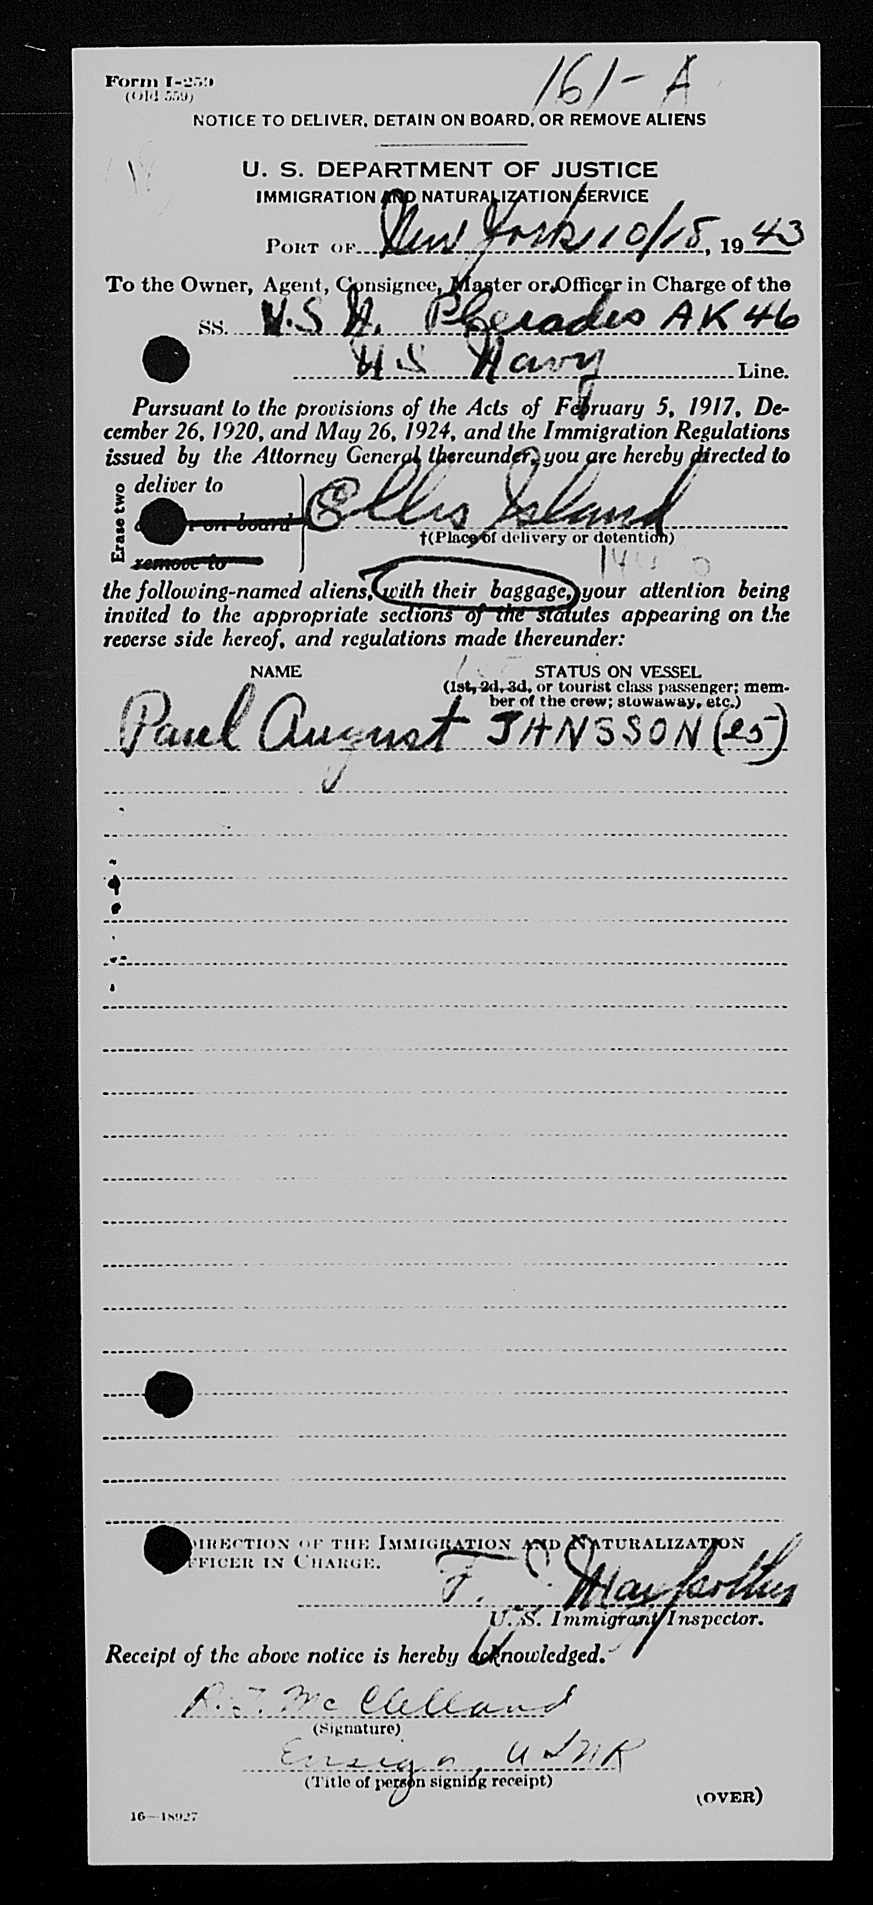 161-A
Form I-259
(Old 559)
NOTICE TO DELIVER, DETAIN ON BOARD, OR REMOVE ALIENS
U. S. DEPARTMENT OF JUSTICE
IMMIGRATION AND NATURALIZATION SERVICE
PORT OF New York 10/18, 1943
To the Owner, Agent, Consignee, Master or Officer in Charge of the
SS. U.S.N. Pleiades AK 46
US Navy Line.
Pursuant to the provisions of the Acts of February 5, 1917, De-
cember 26, 1920, and May 26, 1924, and the Immigration Regulations
issued by the Attorney General thereunder, you are hereby directed to
Erase two
deliver to
on board Ellis Island
†(Place of delivery or detention)
remove to
the following-named aliens, with their baggage, your attention being
invited to the appropriate sections of the statutes appearing on the
reverse side hereof, and regulations made thereunder:
NAME STATUS ON VESSEL
(1st, 2d, 3d, or tourist class passenger; mem-
ber of the crew; stowaway, etc.)
Paul August JANSSON (25)
DIRECTION OF THE IMMIGRATION AND NATURALIZATION
OFFICER IN CHARGE.
U. S. Immigrant Inspector.
Receipt of the above notice is hereby acknowledged.
R. J. McClelland
(Signature)
Ensign, USNR
(Title of person signing receipt)
(OVER)
16—18927